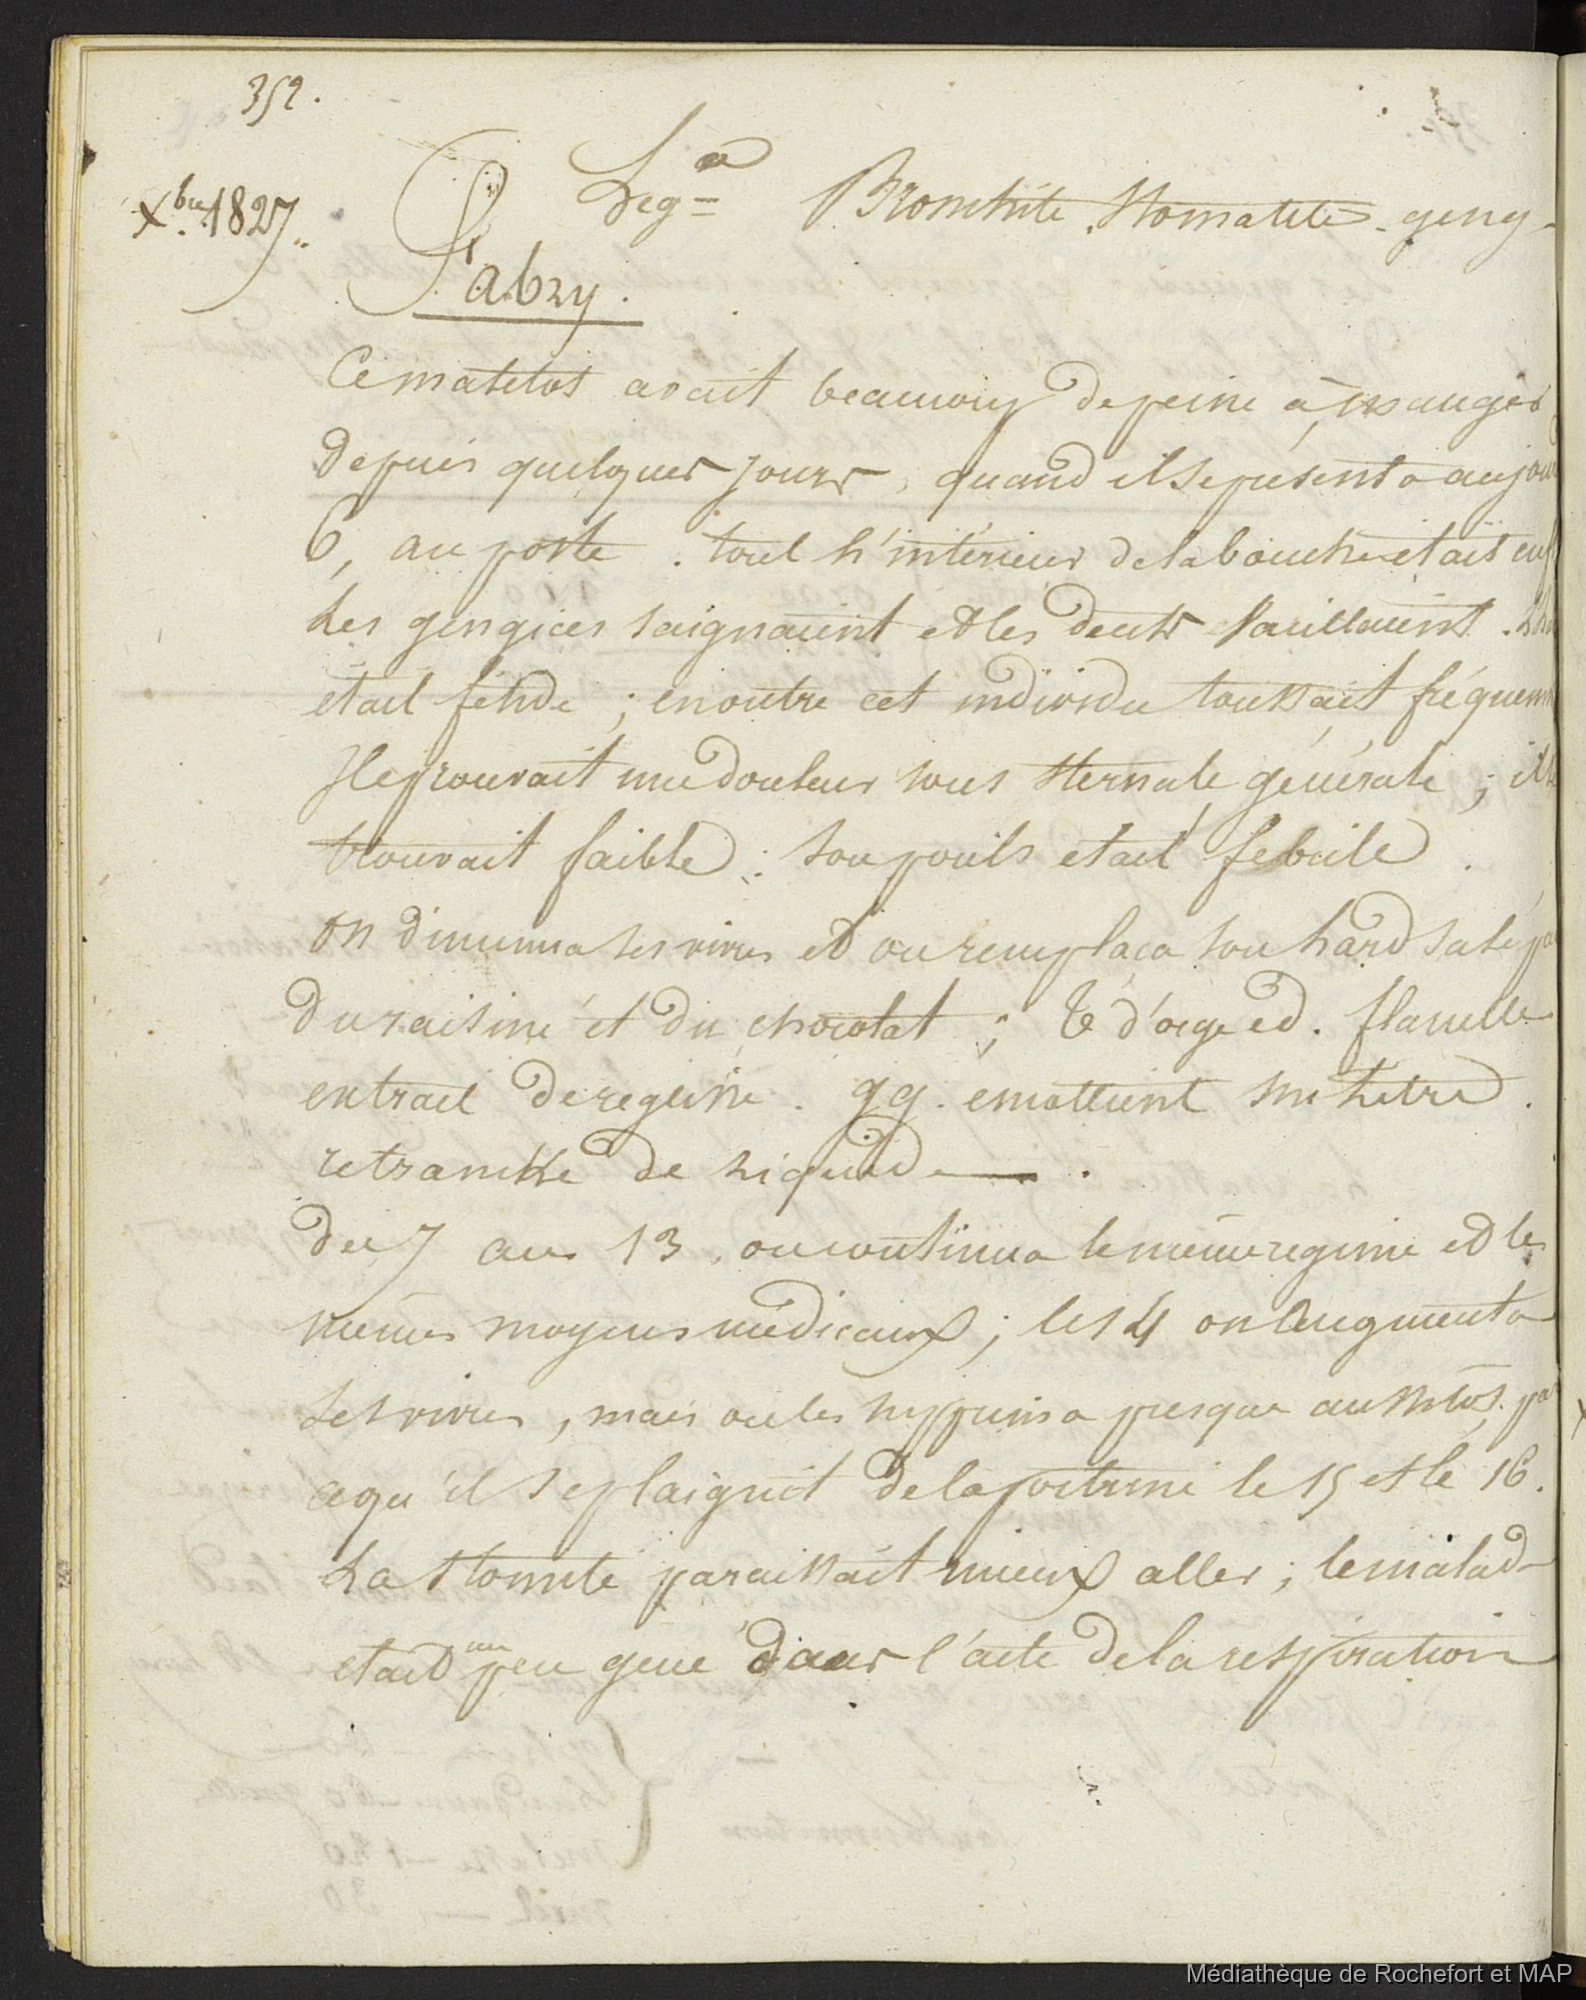 352.
Xbre 1827.
Seg= Bronchite. Stomatite - geng-
Fabry.
Ce matelot avait beaucoup de peine à manger
depuis quelques jours, quand il se présenta aujour
6, au poste. tout l'intérieur de la bouche était enf
Les gengives saignaient et les dents vacillaient.
était fétide ; en outre cet individu toussait fréquemm
Il eprouvait une douleur sous sternale générale ; il se
trouvait faible : son pouls etait febrile.
On diminua ses vivres et on remplaça son lard salé par
du raisiné et du chocolat ; T d'orge ed. flanelle
extrait de reglisse. gg. emollient sur letre.
retranché de liquide.
du 7 au 13, on continua le même regime et les
mêmes moyens médicaux ; le 14 on augmenta
ses vivres, mais on les supprima presque aussitot par
ce qu'il se plaignit de la poitrine le 15 et le 16.
La stomite paraissait mieux aller ; le malade
etait un peu gené dans l'acte de la respiration
Médiathèque de Rochefort et MAP